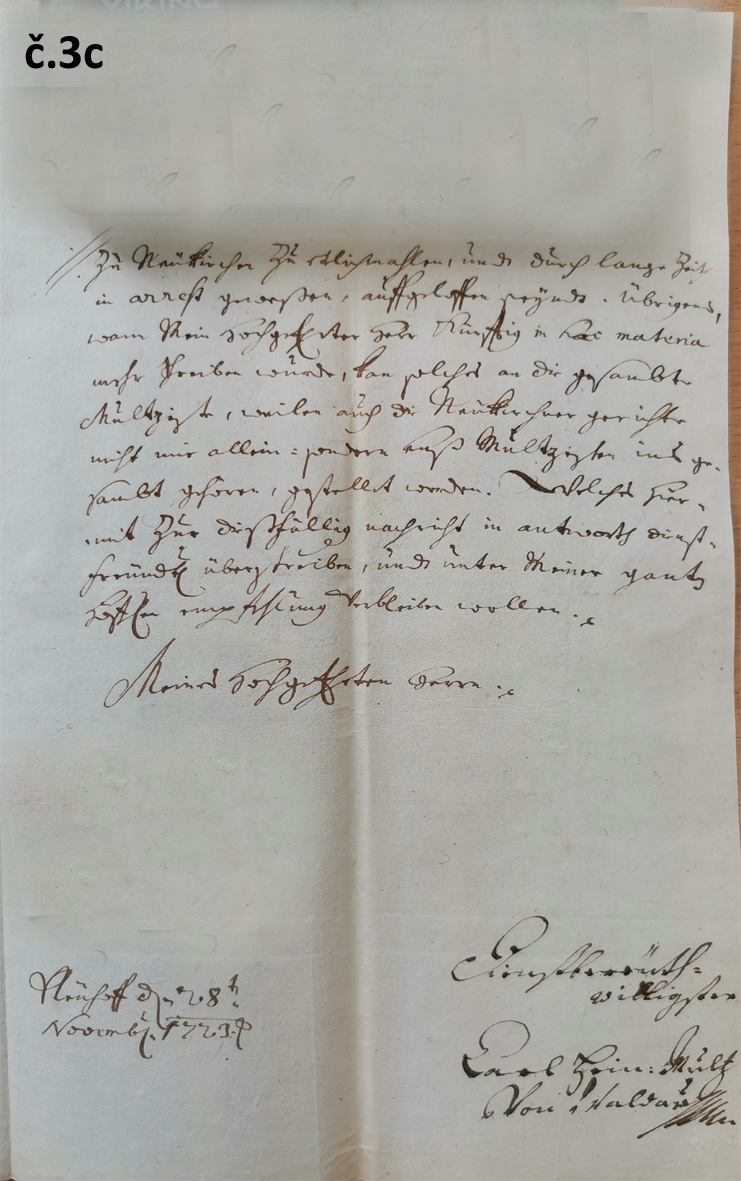 č.3c
Zu Neükirchen Zu etlichmahlen, und durch lange Zeit
in arrest geweßen, auffgeloffen seynd. Übrigens,
wann Mein Hochgeehrter Herr Künfftig in hac materia
mehr schreiben würde, kan solches an die gesambte
Multzische, weilen auch die Neükirchner gerichte
nicht mir allein: sondern unß Multzischen ins ge-
sambt gehören, gestellet werden. Welches hier-
mit Zur dißfällig nachricht in antworth dienst-
freündl überschreiben, und unter Meiner gantz
empfehlung Verbleiben wollen.
Meines Hochgeehrten Herrn.
Neuhoff d. 28t
Novemb. 1723
Dienstbereüth-
willigster
Carl Hein: Multz
Von Waldau